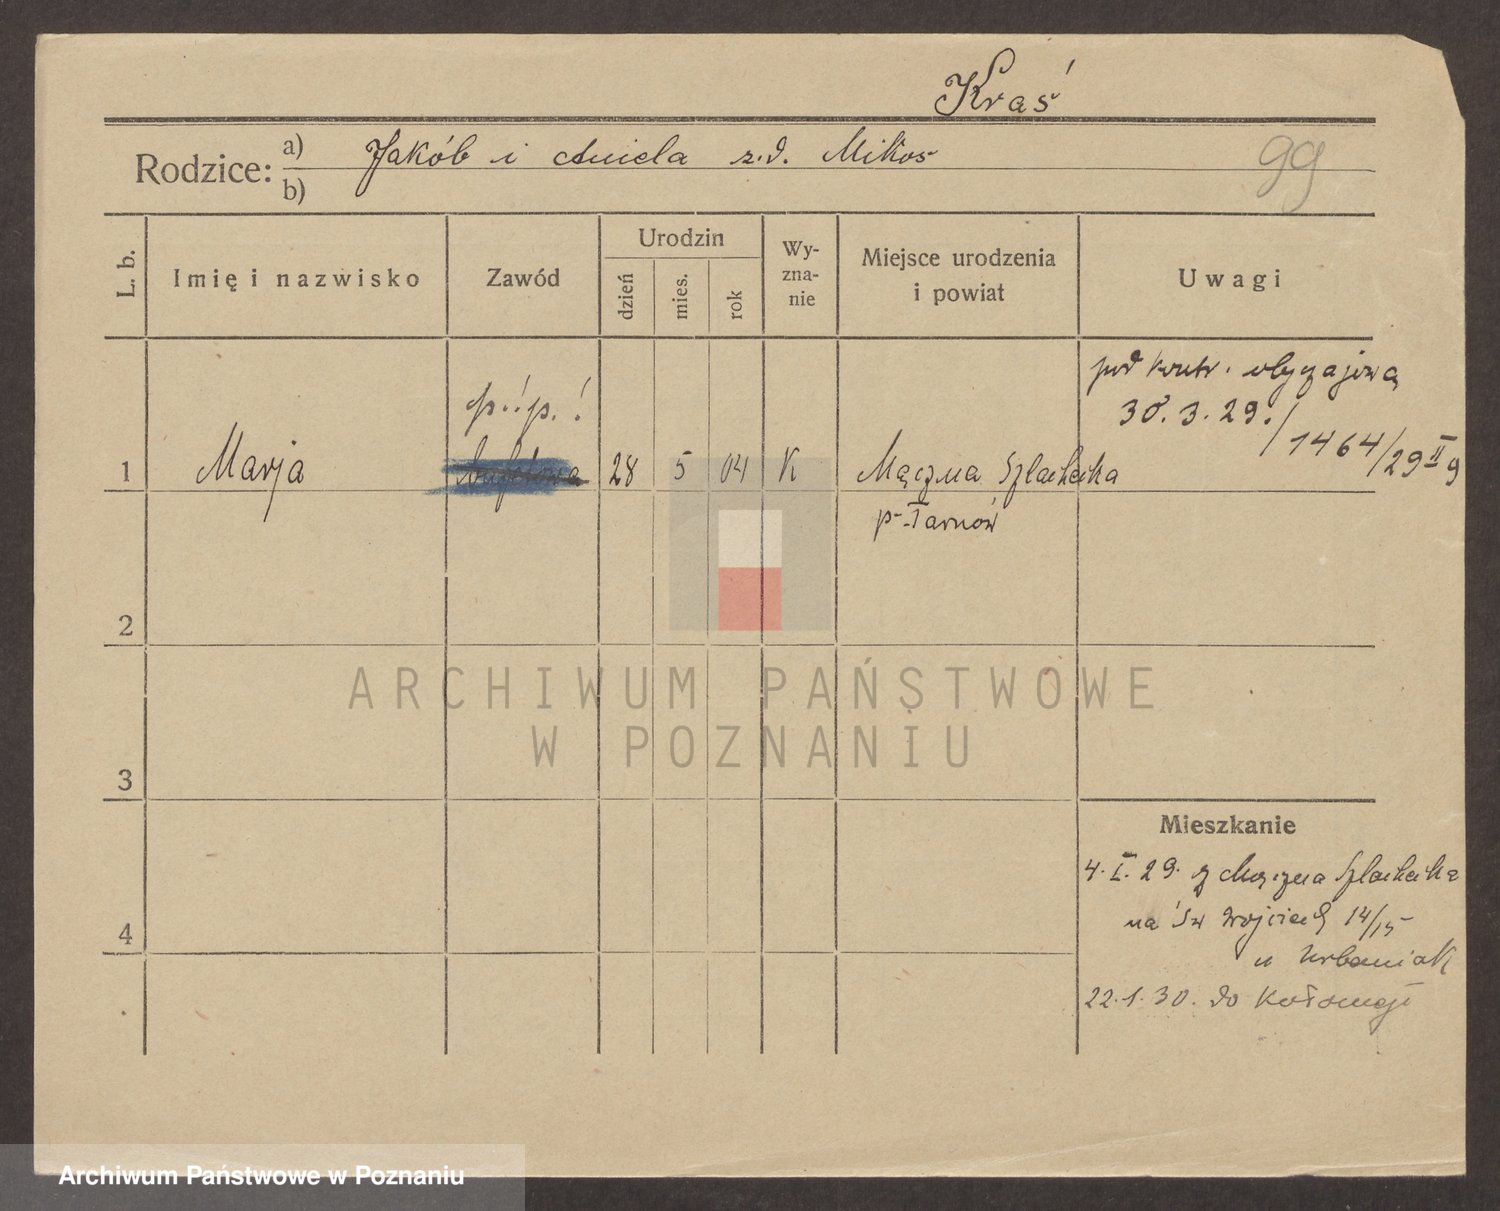 Kraś
Rodzice: a) Jakób i Aniela z.d. Mikos
b)
99
L. b.
Imię i nazwisko
Zawód
Urodzin
dzień
mies.
rok
Wy-
zna-
nie
Miejsce urodzenia
i powiat
Uwagi
pod kontr. obyczajową
30.3.29./1464/29 II 9
p..p.!
1 Marja bufetowa 28 5 04 K Mączna Szlachecka
p-Tarnów
2
3
4
Mieszkanie
4.I.29. z Mączna Szlachecka
na Św Wojciech 14/15
u Urbaniak
22.1.30. do Kołomeji
ARCHIWUM PAŃSTWOWE
W POZNANIU
Archiwum Państwowe w Poznaniu